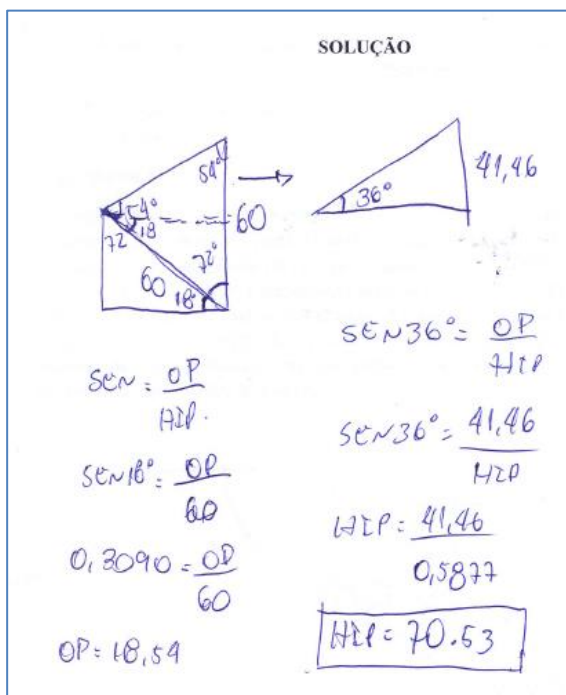 SOLUÇÃO
54°
54°
18
72
60
72°
60
18°
36°
41,46
SEN = OP
HIP.
SEN18° = OP
60
0,3090 = OP
60
OP = 18,54
SEN36° = OP
HIP
SEN36° = 41,46
HIP
HIP = 41,46
0,5877
HIP = 70.53